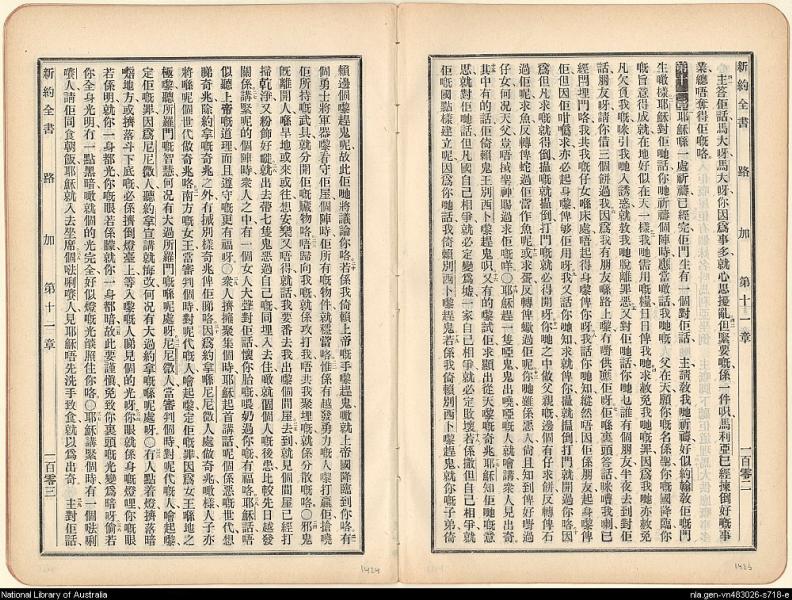 新約全書 路加 第十一章 一百零二
主答佢話馬大呀馬大呀你因爲事多就心思擾亂但緊要嘅係一件呮馬利亞已經揀倒好嘅事
業總唔奪得佢嘅咯
耶穌喺一處祈禱已經完佢門生有一個對佢話主請教我哋祈禱好似約翰教佢嘅門
生噉樣耶穌對佢哋話你哋祈禱個陣時應當噉話我哋嘅父在天願你嘅名係聖你嘅國降臨你
嘅旨意得成就在地好似在天一樣我哋需用嘅糧日日俾我哋求赦免我哋嘅罪因爲我哋亦赦免
凡欠負我哋嘅咪引我哋入誘惑就救我哋脫離罪惡又對佢哋話你哋乜誰有個朋友半夜去到對佢
話朋友呀請你借三個餅過我因爲我有朋友喺路上嚟有嘢供應佢呀佢喺裏頭答話咪嘈我喇已
經閂埋門咯我共我嘅仔女喺床處唔起得身嚟俾你呀我話你哋知縱然唔因係朋友起身嚟俾
佢但因佢噉求亦必起身嚟俾够佢用呀我又話你哋知求就俾你揾就揾倒打門就開過你咯因
爲但凡求嘅就得倒揾嘅就揾倒打門嘅就必得開呀你哋之中做父親嘅邊個有仔求餅反轉俾石
過佢呢求魚反轉俾蛇過佢當作魚呢或求蛋反轉俾蠍過佢呢你哋雖係惡人尚且知到俾好嘢過
仔女何況天父豈唔掝聖神賜過求佢嘅咩耶穌趕一隻啞鬼鬼出嘵啞嘅人就會講衆人見出奇
其中有的話佢倚賴鬼王別西卜嚟趕鬼呮又有的嚟試佢求顯出從天嚟嘅奇兆耶穌知佢哋嘅意
思就對佢哋話但凡國自己相爭就必定變爲墟一家自己相爭就必定敗壞若係撒但自己相爭就
佢嘅國點樣建立呢因爲你哋話我倚賴別西卜嚟趕鬼若係我倚賴別西卜嚟趕鬼就你嘅子弟倚
1423
賴邊個嚟趕鬼呢故此佢哋將議論你咯若係我倚賴上帝嘅手嚟趕鬼噉就上帝國降臨到你咯有
個勇士將軍器嚟看守佢屋個陣時佢所有嘅物件就穩當咯惟係有越發勇力嘅人嚟打贏佢搶嘵
佢所恃嘅武具就分開佢嘅贓物咯唔歸向我嘅就係攻打我唔共我聚埋嘅就係分散嘅咯邪鬼
既離開人喺旱地或來或往想安樂又唔得就話我要番去我出嚟個間屋去到就見個間屋已經打
掃乾淨又粉飾好嘵就出去帶七隻鬼惡過自己嘅同埋入去住噉就個個人嘅後患比較先日越發
關係講緊呢的個陣時衆人之中有一個女人大聲對佢話懷你胎嘅嚈奶過你嘅有福咯耶穌話唔
似聽上帝嘅道理而且遵守嘅更有福呀衆人擠擁聚集個時耶穌起首講話呢個係惡嘅世代想
睇奇兆除約拿嘅奇兆之外冇掝別樣奇兆俾佢睇咯因爲約拿喺尼尼微人處做奇兆噉樣人子亦
將喺呢個世代做奇兆咯南方嘅女王當審判個時對呢代嘅人嚟起嚟定佢嘅罪因爲女王喺地之
極嚟聽所羅門嘅智慧何況有大過所羅門嘅喺呢處呀尼尼微人當審判個時對呢代嘅人會起嚟
定佢嘅罪因爲尼尼微人聽約拿宣講就悔改何況有大過約拿嘅喺呢處呀有人點着燈擠落暗
嘅地方或擠落斗下底嘅必係擠倒燈臺上等入嚟嘅人睇見個的光呀你眼就係身嘅燈哩你嘅眼
若係明就你一身都光你嘅眼若係矇就你一身都暗故此要謹愼免致你裏頭嘅光變爲暗呀倘若
你全身光明冇一點黑暗噉就個的光完全好似燈嘅光燄照住你咯耶穌講緊個時有一個㕸唎
㘔人請佢同食朝飯耶穌就入去坐席個㕸唎㘔人見耶穌唔先洗手致食就以爲出奇主對佢話
新約全書 路加 第十一章 一百零三
1424
National Library of Australia
nla.gen-vn483026-s718-e